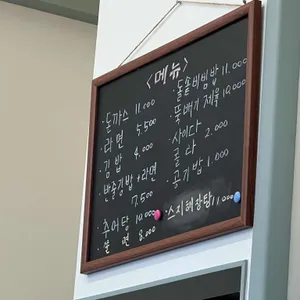 <메뉴>
· 돈까스 11.000
· 라면 5.500
· 김밥 4.000
· 반줄김밥+라면 7.500
· 추어탕 10.000
· 쫄면 8.000
· 돌솥비빔밥 11.000
· 뚝배기 제육 10.000
· 사이다
· 콜라 2.000
· 공기밥 1.000
· 스지해장탕 11.000